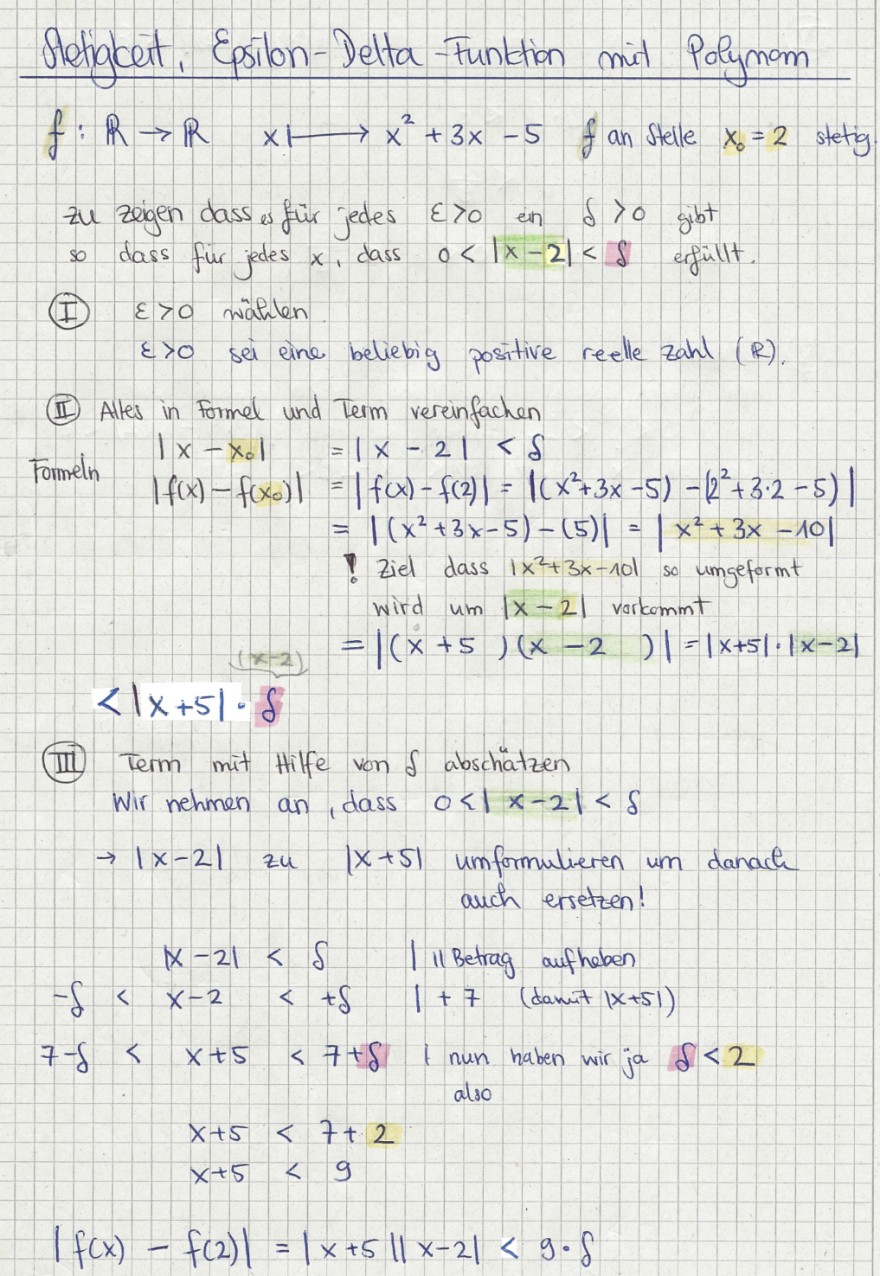 Stetigkeit, Epsilon-Delta-Funktion mit Polynom
f : ℝ → ℝ x ⟼ x² + 3x - 5 f an Stelle x₀ = 2 stetig.
zu zeigen dass es für jedes ε>0 ein δ>0 gibt
so dass für jedes x, dass 0 < |x-2| < δ erfüllt.
Ⅰ ε>0 wählen.
ε>0 sei eine beliebig positive reelle Zahl (ℝ).
Ⅱ Alles in Formel und Term vereinfachen
|x - x₀| = |x - 2| < δ
Formeln |f(x) - f(x₀)| = |f(x) - f(2)| = |(x²+3x-5) - (2²+3·2-5)|
= |(x²+3x-5)-(5)| = |x²+3x-10|
! Ziel dass |x²+3x-10| so umgeformt
wird um |x-2| vorkommt
= |(x+5)(x-2)| = |x+5|·|x-2|
(x-2)
< |x+5| · δ
Ⅲ Term mit Hilfe von δ abschätzen
Wir nehmen an, dass 0<|x-2| < δ
→ |x-2| zu |x+5| umformulieren um danach
auch ersetzen!
|x-2| < δ | || Betrag aufheben
-δ < x-2 < +δ | +7 (damit |x+5|)
7-δ < x+5 < 7+δ | nun haben wir ja δ<2
also
x+5 < 7+2
x+5 < 9
|f(x) - f(2)| = |x+5||x-2| < 9·δ